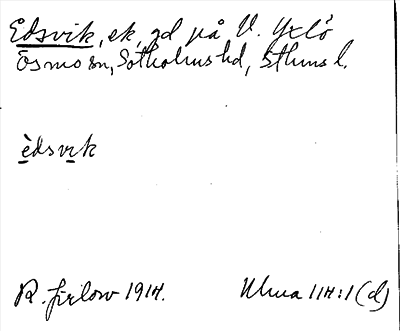 Edsvik, ek, gd på V. Yxlö
Ösmo sn, Sotholms hd, Sthms l.
èdsvik
R. 1914.
114:1 (d)